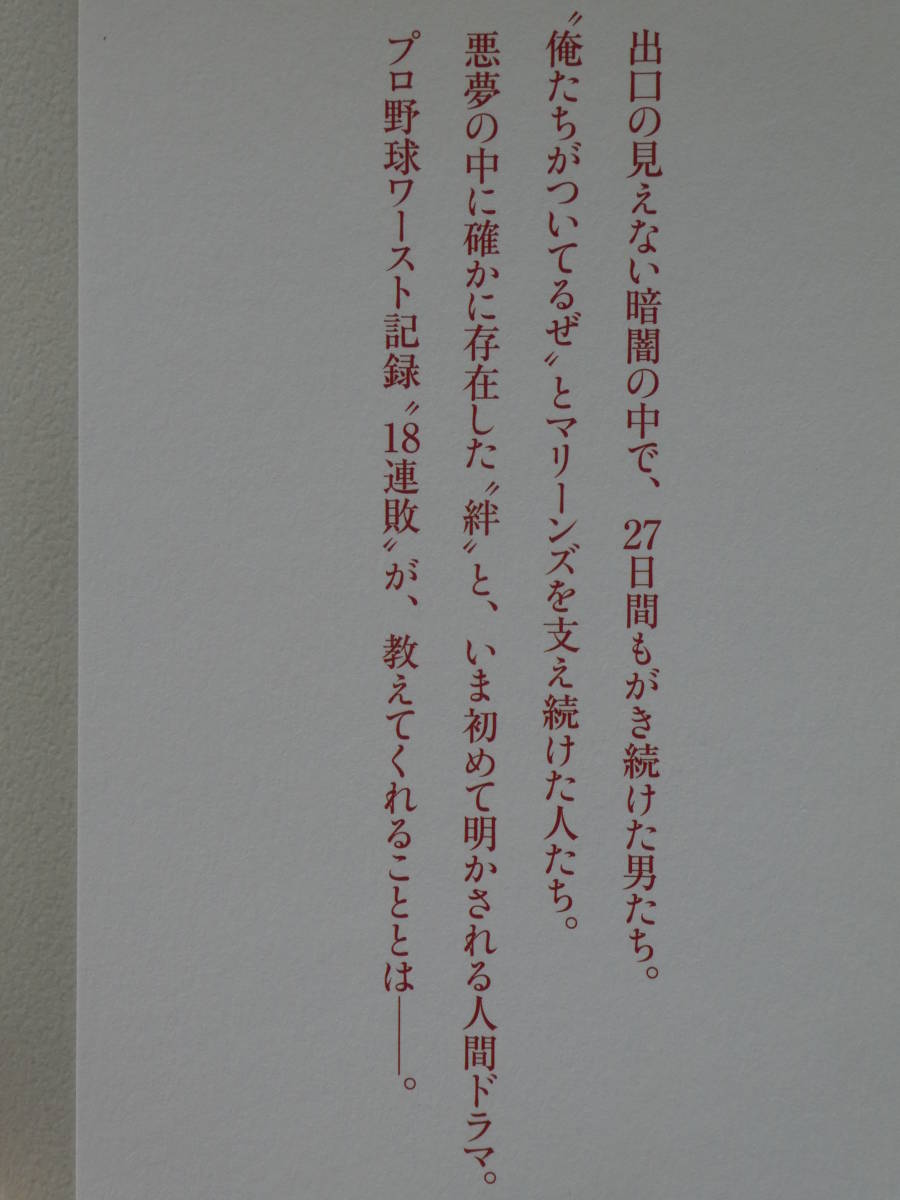 出口の見えない暗闇の中で、27日間もがき続けた男たち。
〝俺たちがついてるぜ〟とマリーンズを支え続けた人たち。
悪夢の中に確かに存在した〝絆〟と、いま初めて明かされる人間ドラマ。
プロ野球ワースト記録〝18連敗〟が、教えてくれることとは――。